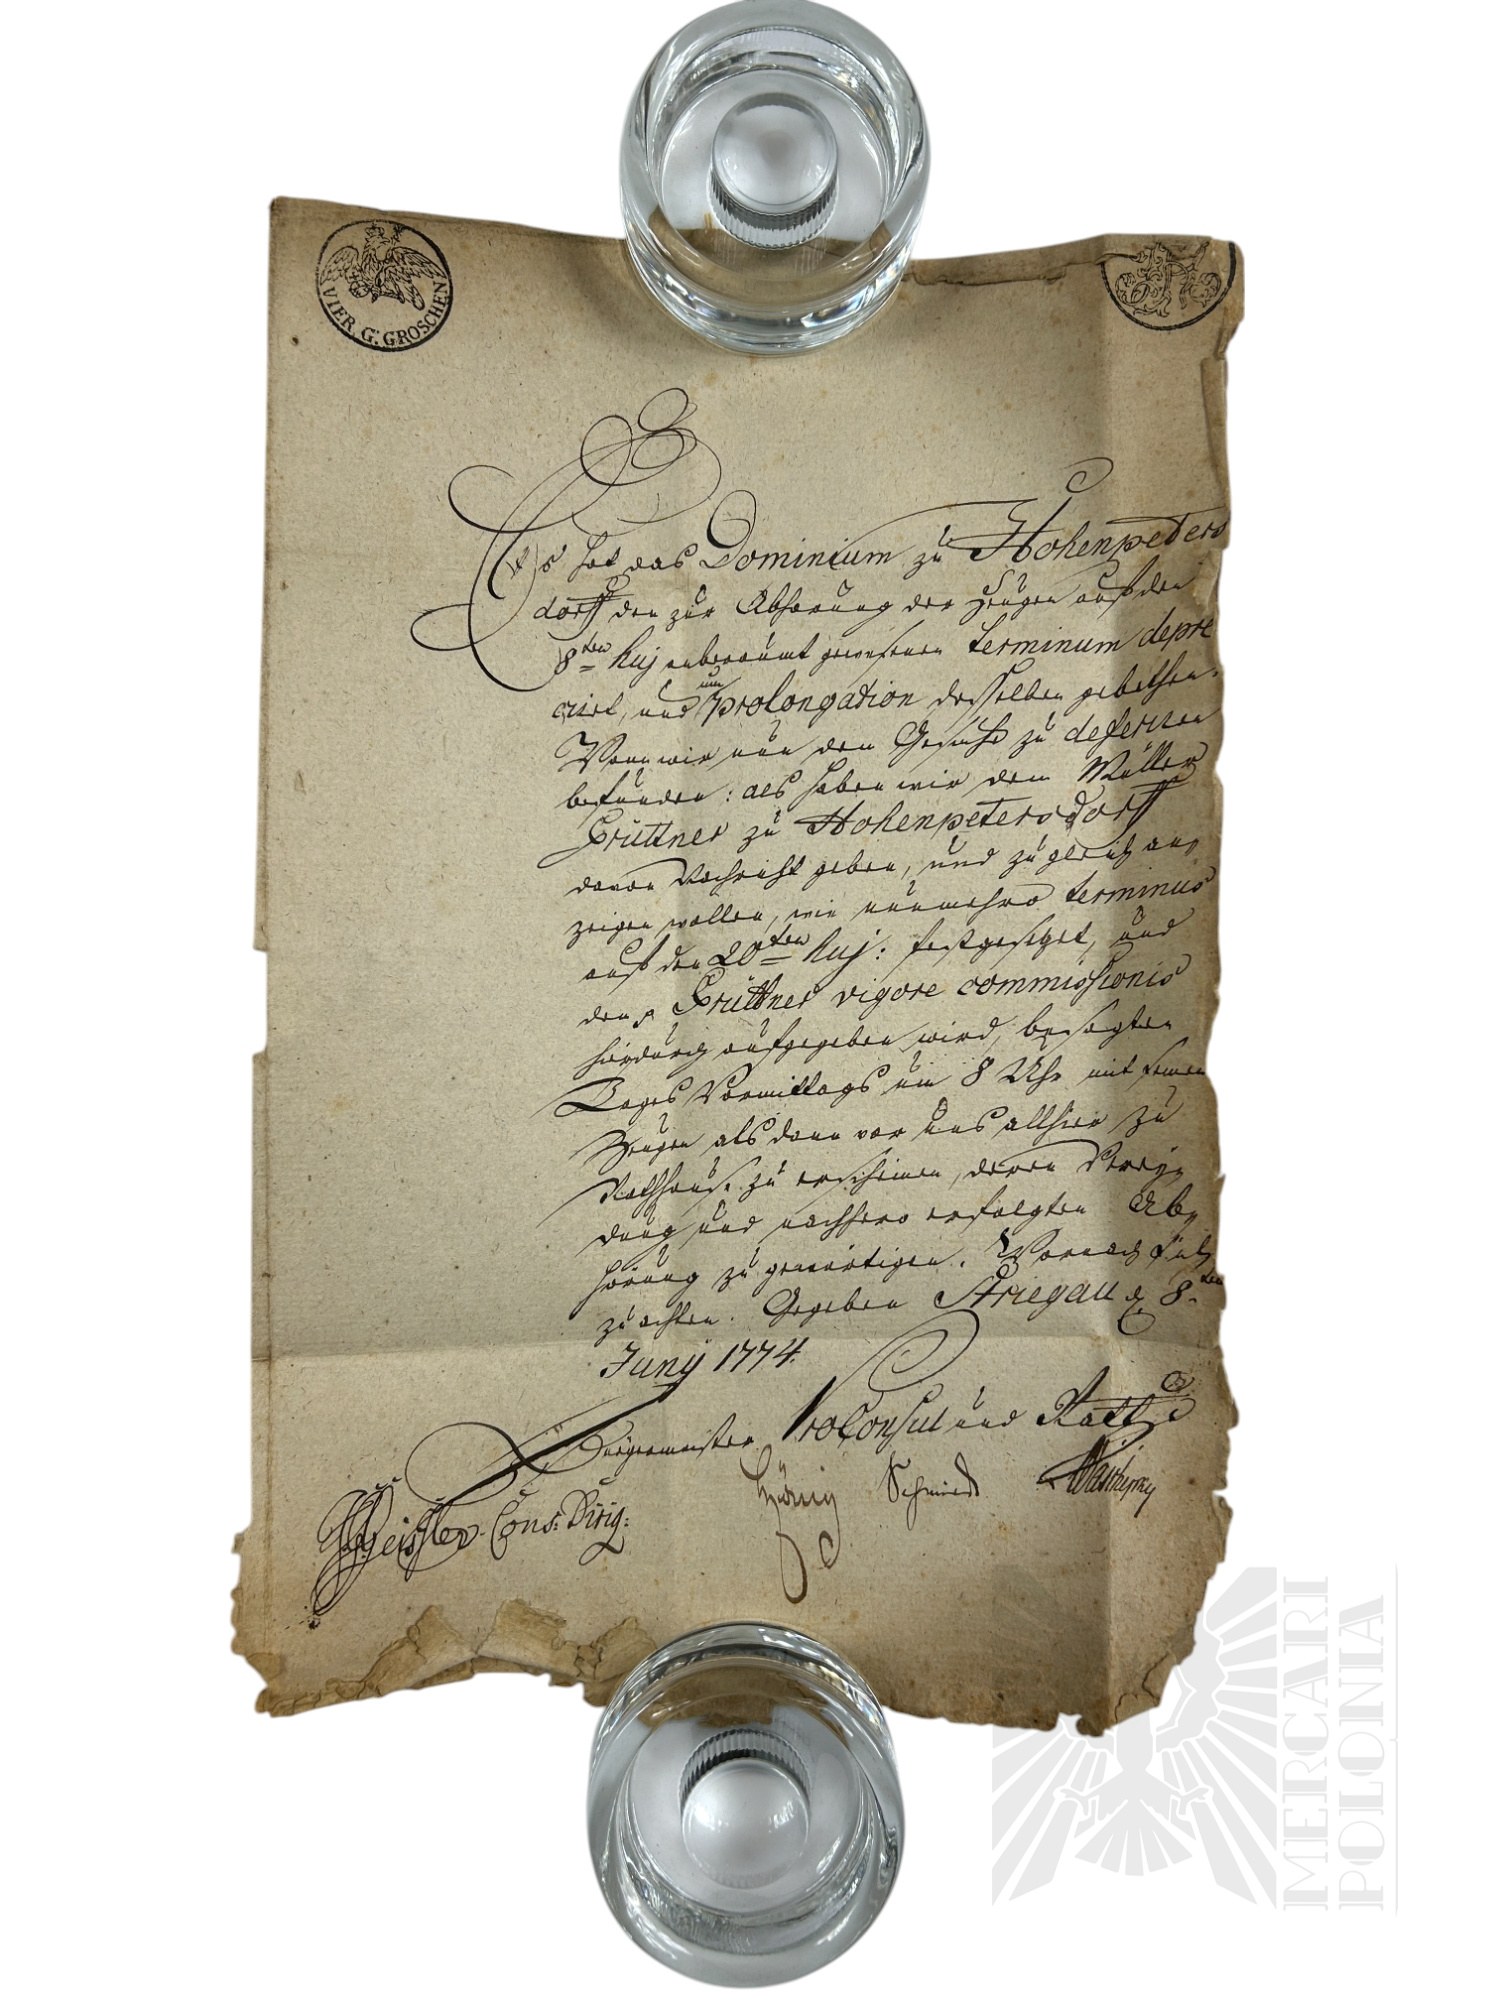 VIER G. GROSCHEN
Es hat das Dominium zu Hohenpeters
dorff den zur Abhörung der Zeugen auf den
8ten huj anberaumt gewesenen terminum depre
ciret, und um prolongation desselben gebethen.
Wann wir nun dem Gesuche zu deferiren
befunden: als haben wir dem Müller
Grüttner zu Hohenpetersdorff
davon Nachricht geben, und zugleich an
zeigen wollen, wie nunmehro terminus
auf den 20ten huj: festgesetzet, und
dem Grüttner vigore commissionis
hierdurch aufgegeben wird, besagten
Tages Vormittags um 8 Uhr mit seinen
Zeugen alsdann vor uns allhier zu
Rathhause zu erscheinen, deren Verey
dung und nachhero erfolgten Ab
hörung zu gewärtigen. Wornach sich
zu achten. Gegeben Striegau d. 8ten
Juny 1774.
Bürgermeister ProConsul und Rath
Cons: Dirig: König Schmiedt
MERCARI
POLONIA